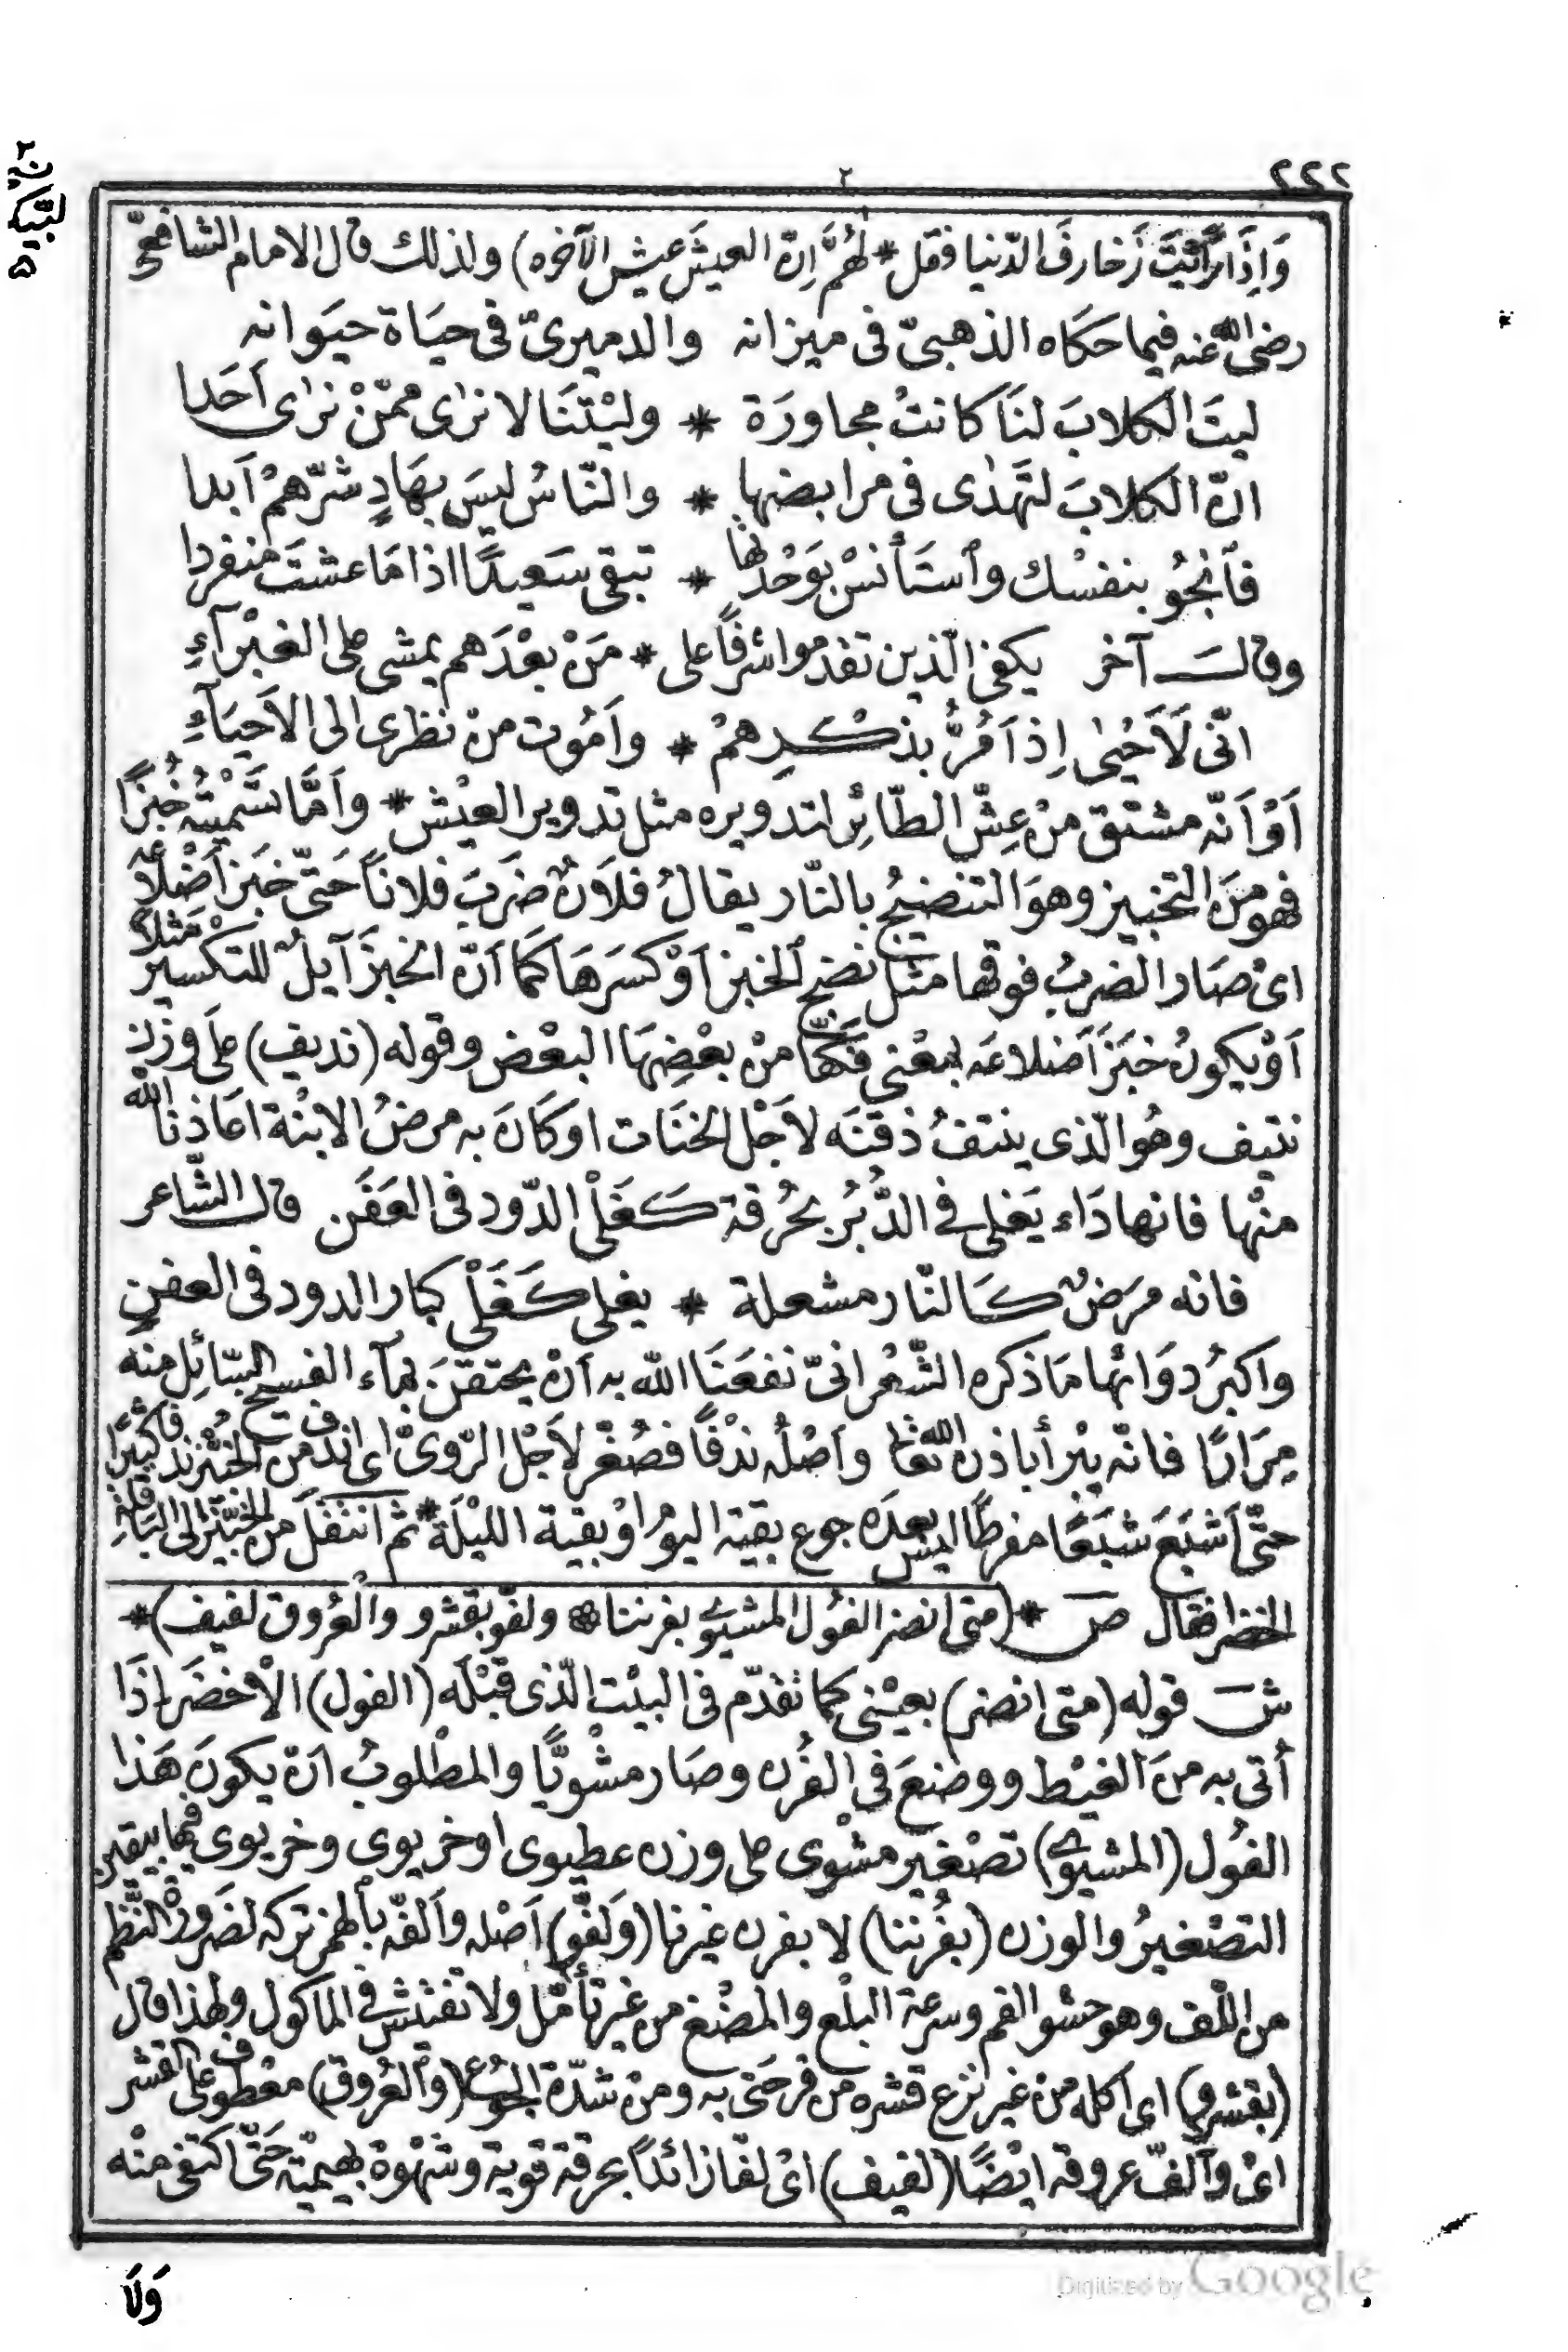 ٢٢٢
٢
وَإِذَا رَأَيْتَ زَخارفَ الدّنيا فقل * لهُمَّ اِنّ العيشَ عيش الآخره) ولذلك قال الامام الشافعىّ
رضى الله عنه فيما حكَاه الذهبىّ فى ميزانه والدميرىّ فى حيَاة حيَوانه
ليتَ الكلابَ لنَا كانتْ مجاورَة * وليْتَنَا لا نرى ممّنْ نرٰى اَحَدا
انّ الكلابَ لتَهدٰى فى مرابضها * والنّاسُ ليسَ بهَادٍ شرّهمْ اَبدا
فاَنجُو بنفسْك واَستَأنسْ بوَحْدتها * تبقى سَعيدًا اذا مَا عشتَ منفردا
وقالَ آخر يكفى الّذين تقدموا شرفًا على * مَنْ بعْدَهم يمشى على الغبْرآءِ
انّى لَاَحْيٰى اِذ اَمُرُّ بذكْرِهمْ * واَمُوت منْ نظرى الى الاَحيَآءِ
اَوْ اَنّه مشتق منْ عِشّ الطّائِر لتدويره مثل تدوير العيْش * واَمَّا تسَمْيتهُ خُبزًا
فهو منَ التخبيز وهوَ التنضيجُ بالنّار يقالُ فلاَنٌ ضَرَبَ فلاناً حَتّى خبَز اَضْلاَعه
اىْ صَار الضربُ فوقها مثل نضج الخبز اَوْ كسَرهَا كمَا اَنّ الخبزَ آيلٌ للتكْسير مَثلاً
اَوْ يكونُ خبَزَ اَضلاعَه بمعْنى فكّها منْ بعْضِهَا البعْض وقوله (نديف) على وزن
نتيف وهُو الّذى ينتفُ ذقنَه لاَجْل الخنَات او كَانَ به مرضُ الابنْة اعَاذنا الله
منْها فانها دَاء يَغلى فى الدُّبُر بحُرقة كَغَلْى الدّود فى العَفَن قال الشّاعر
فانه مرَضٌ كالنّار مشعلة * يغلى كَغَلْى كبار الدود فى العفنِ
واكبرُ دوَائها مَا ذكره الشّعرانىّ نفعَنَا الله به اَنْ يحتقنَ بمآء الفسيخ السّائِل منه
مِرَارًا فانّه يبْرأ باذن الله تعا واَصْله ندْفًا فصُغّرْ لاَجْل الرّوىّ اى اندف من الخبْز ندفًا كثيرًا
حتّى اَشبَعَ شبَعًا مفرطًا ليس بعدَه جوع بقية اليوْم اوْ بقية الليْلَة * ثم انتقَلَ من الخبْز الى الباقلة
الخضرا فقال ص * (متى انضر الفوُل المشيوي بفرننا * ولفّو بقشرو والْعُروق لفيف) *
شَ قوله (متى انضر) بعيْنى كما تقدّم فى البيْت الّذى قبْلَه (الفول) الْاَخضَر اذَا
أُتى به منَ الغيْط ووضعَ فى الفُرن وصَار مشْويًّا والمطْلوبُ اَنْ يكونَ هَذا
الفوُل (المشيوي) تصْغير مشْوى على وزن عطيوى اوخريوى وخريوى فيهَا يبقين
التصْغيرُ والوزن (بفُرننا) لا بفرن غيرنا (وَلَفّو) اَصْله واَلفّه بالْهمز تركه لضَرورةْ النَّظم
من اللّف وهو حشو الفم وسرعة البلْع والمضْغ من غير تأمّل ولا تفتيش فى الماكول ولهذا قال
(بقشرو) اى اكله منْ غير نزع قشره من فرحَتى به ومنْ شدّة الجُوع (والعُروق) معْطوف على القشر
اىْ واَلفّ عروقه ايْضًا (لفيف) اىْ لفّا زائدًا بحرقة قوية وشَهْوة بهيميّة حَتّى اكتفى منْه
وَلَا
Digitized by Google